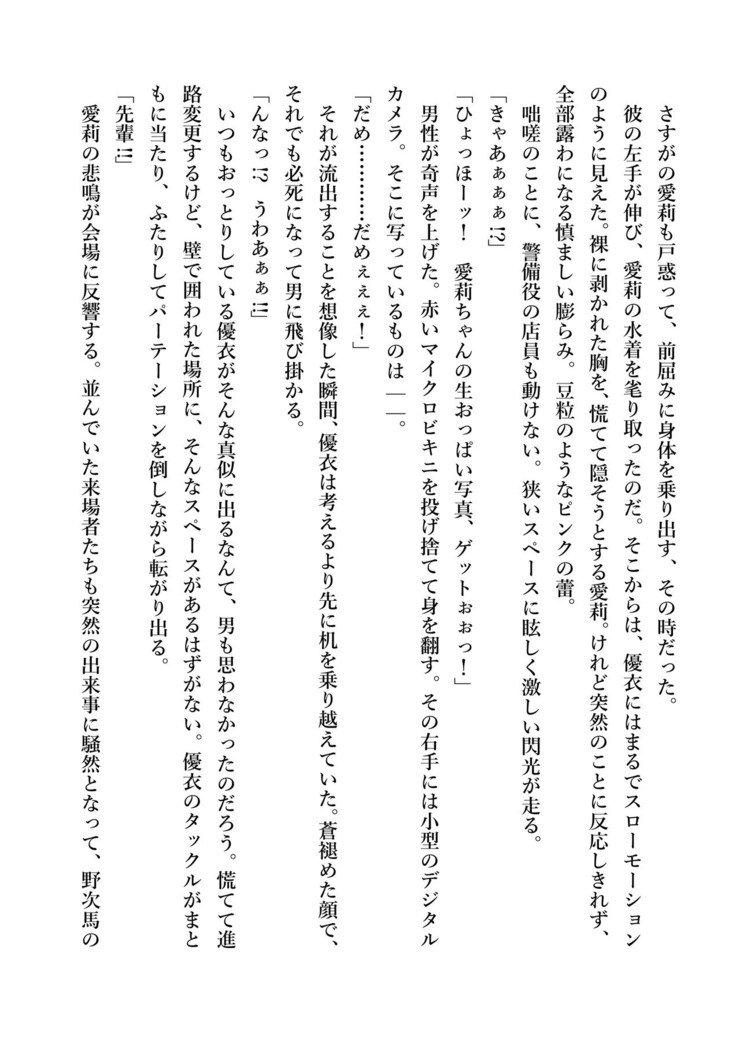 さすがの愛莉も戸惑って、前屈みに身体を乗り出す、その時だった。
彼の左手が伸び、愛莉の水着を毟り取ったのだ。そこからは、優衣にはまるでスローモーション
のように見えた。裸に剥かれた胸を、慌てて隠そうとする愛莉。けれど突然のことに反応しきれず、
全部露わになる慎ましい膨らみ。豆粒のようなピンクの蕾。
咄嗟のことに、警備役の店員も動けない。狭いスペースに眩しく激しい閃光が走る。
「きゃあぁぁぁ!?」
「ひょっほーッ！　愛莉ちゃんの生おっぱい写真、ゲットぉぉっ！」
男性が奇声を上げた。赤いマイクロビキニを投げ捨てて身を翻す。その右手には小型のデジタル
カメラ。そこに写っているものは――。
「だめ…………だめぇぇぇ！」
それが流出することを想像した瞬間、優衣は考えるより先に机を乗り越えていた。蒼褪めた顔で、
それでも必死になって男に飛び掛かる。
「んなっ!?　うわあぁぁ!!」
いつもおっとりしている優衣がそんな真似に出るなんて、男も思わなかったのだろう。慌てて進
路変更するけど、壁で囲われた場所に、そんなスペースがあるはずがない。優衣のタックルがまと
もに当たり、ふたりしてパーテーションを倒しながら転がり出る。
「先輩!!」
愛莉の悲鳴が会場に反響する。並んでいた来場者たちも突然の出来事に騒然となって、野次馬の